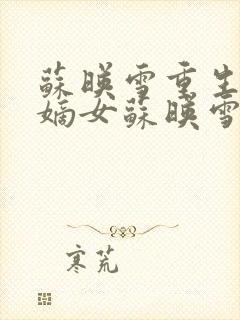 蘇暎雪重生
嫡女蘇暎雪
寒荒